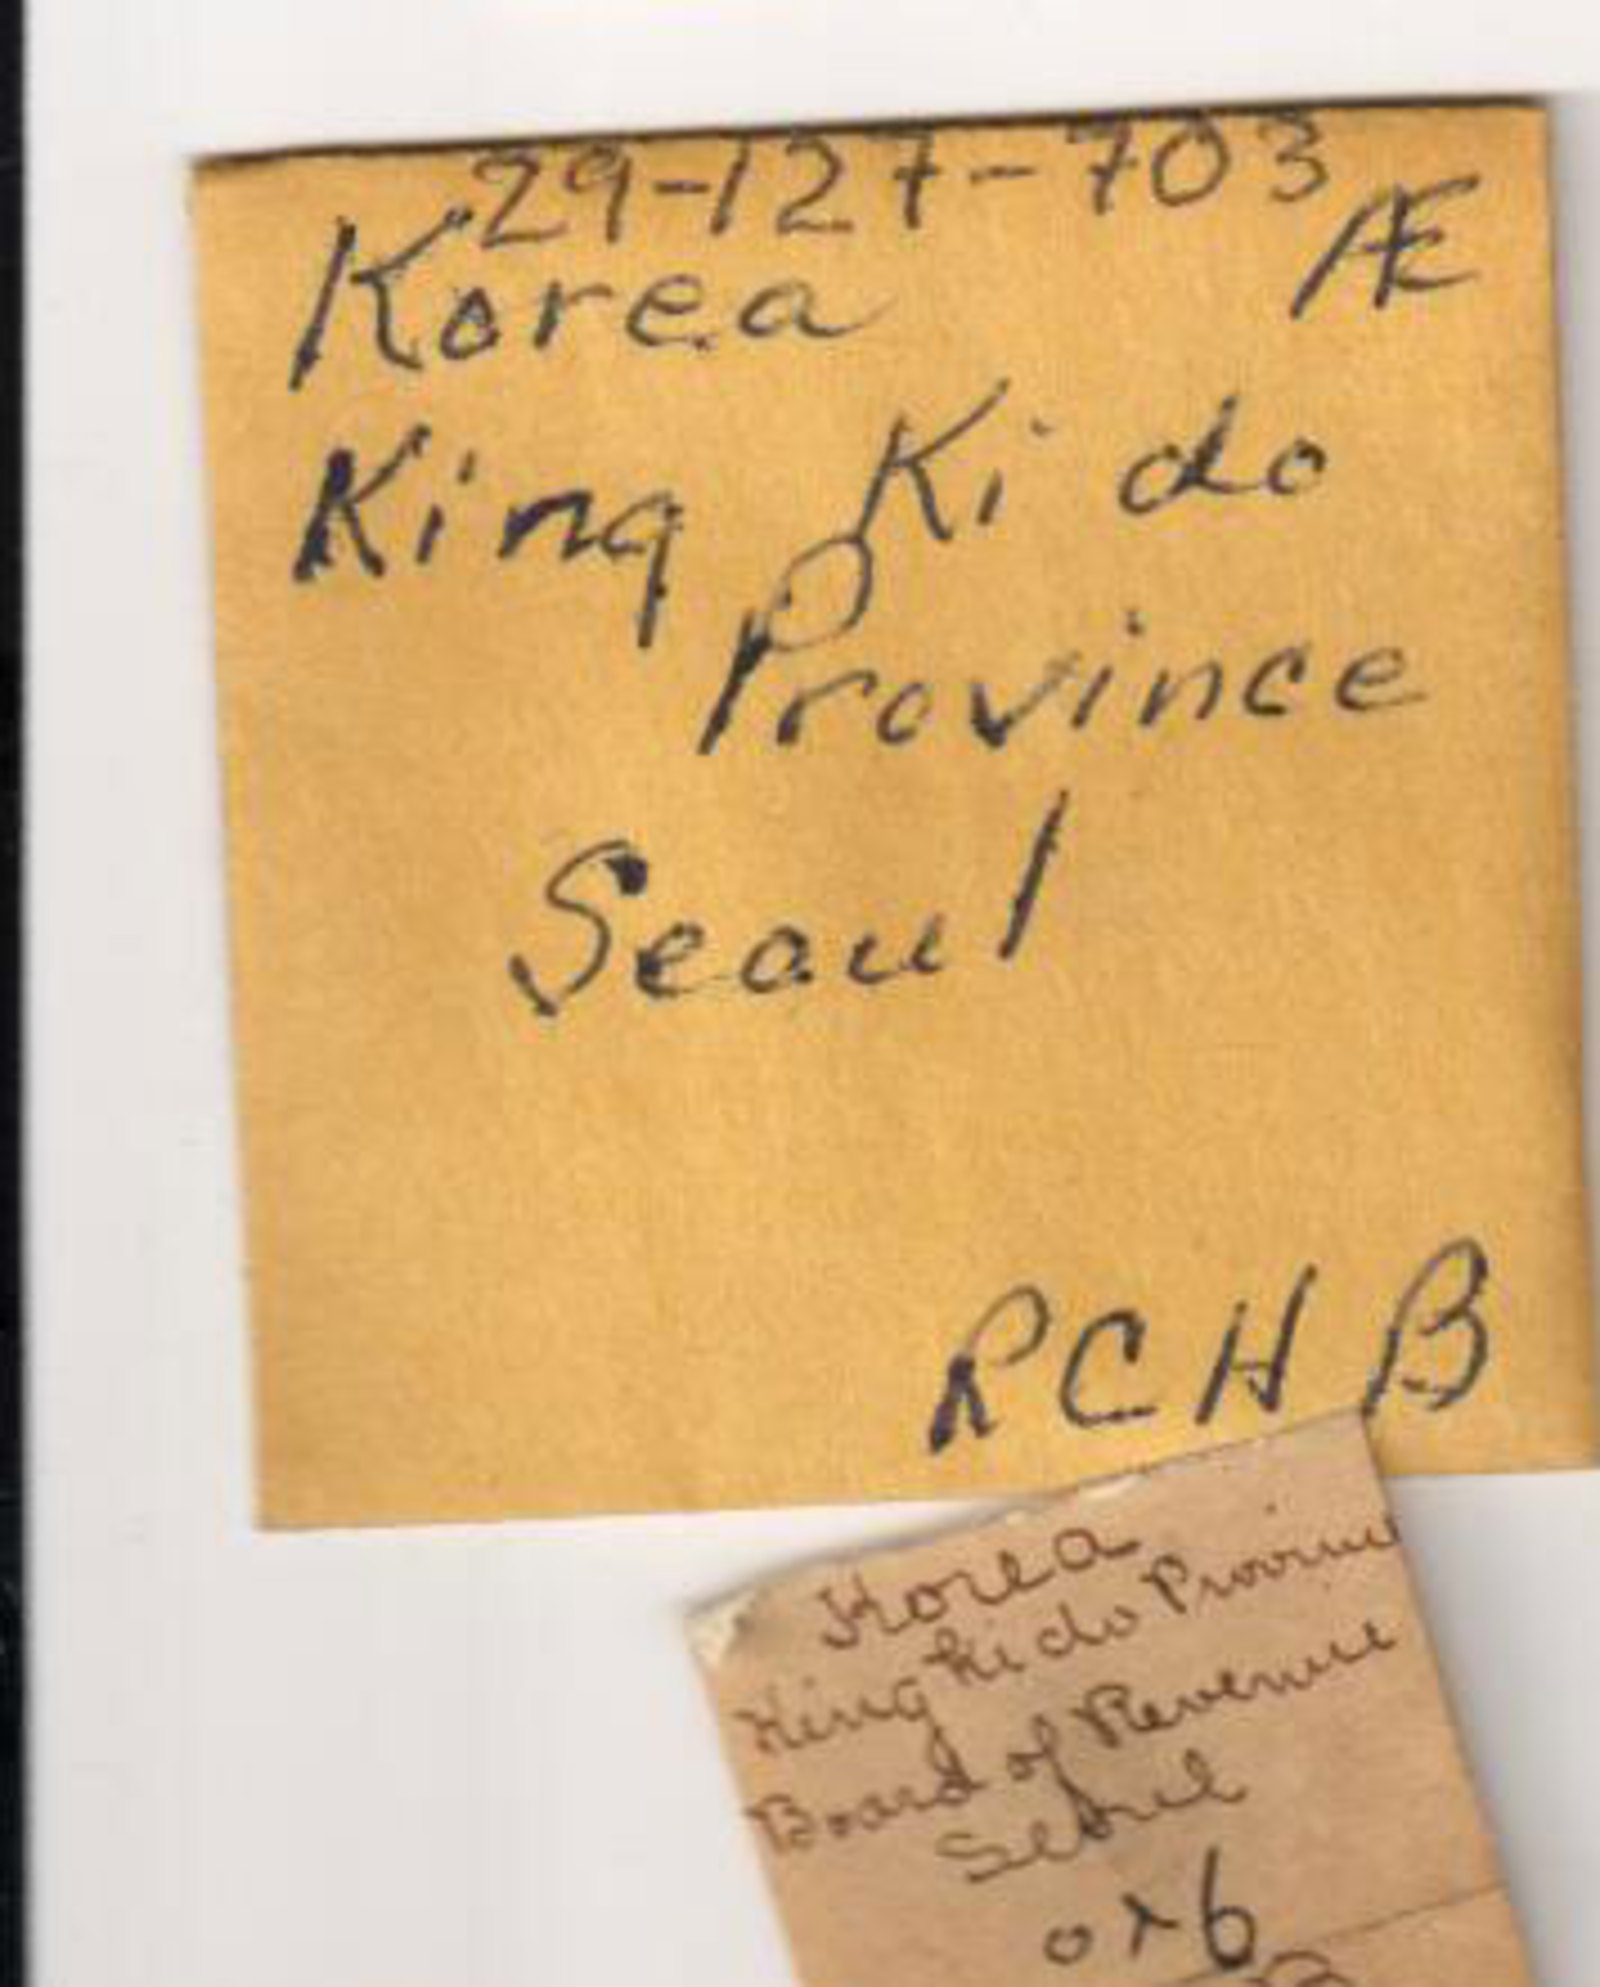 29-127-703
Korea Æ
King Ki do
Province
Seoul
RCH B
Korea
King Ki do Province
Board of Revenue
Seoul